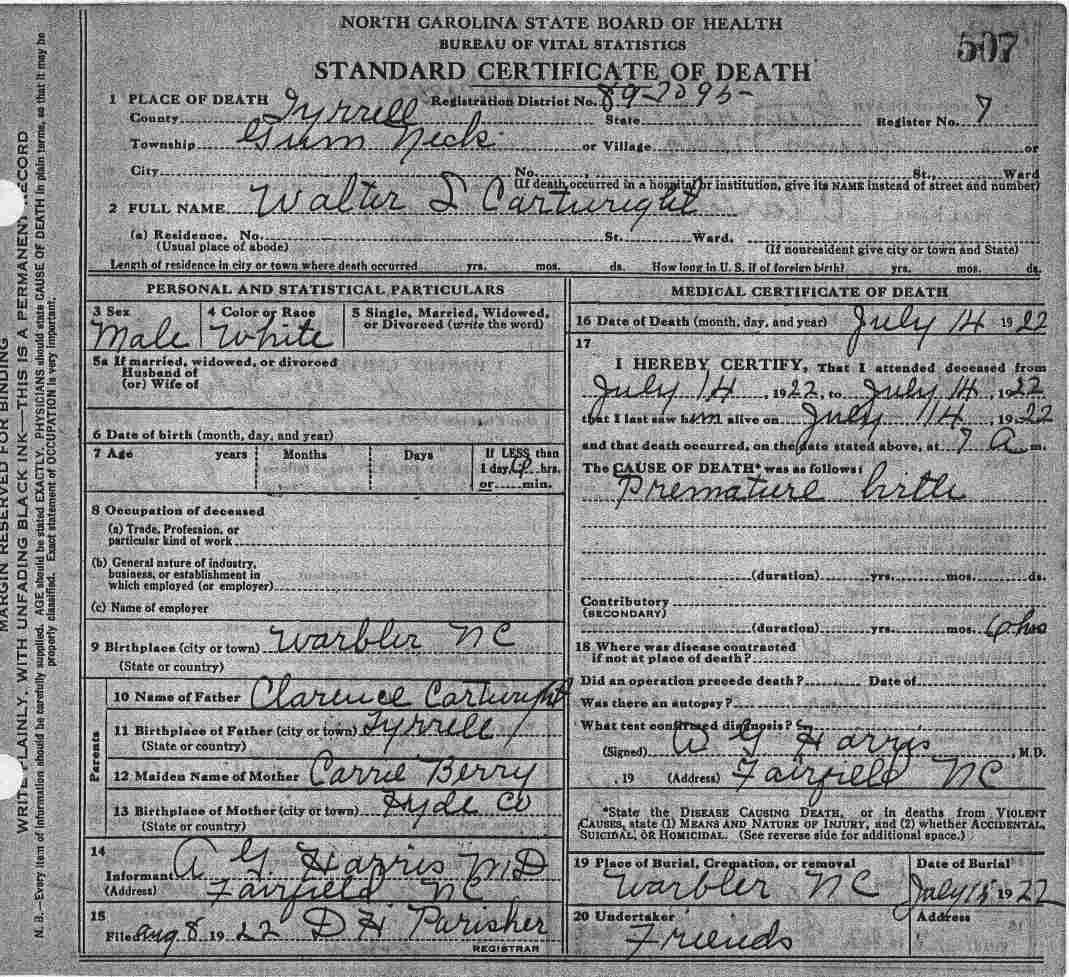 NORTH CAROLINA STATE BOARD OF HEALTH
BUREAU OF VITAL STATISTICS
507
STANDARD CERTIFICATE OF DEATH
1 PLACE OF DEATH Registration District No. 89-7095-
County Tyrrell State Register No. 7
Township Gum Neck or Village or
City No. St., Ward
(If death occurred in a hospital or institution, give its NAME instead of street and number)
2 FULL NAME Walter S Cartwright
(a) Residence. No. St. Ward.
(Usual place of abode) (If nonresident give city or town and State)
Length of residence in city or town where death occurred yrs. mos. ds. How long in U. S. if of foreign birth? yrs. mos. ds.
PERSONAL AND STATISTICAL PARTICULARS
3 Sex 4 Color or Race 5 Single, Married, Widowed,
or Divorced (write the word)
Male White
5a If married, widowed, or divorced
Husband of
(or) Wife of
6 Date of birth (month, day, and year)
7 Age years Months Days If LESS than
1 day, 6 hrs.
or min.
8 Occupation of deceased
(a) Trade, Profession, or
particular kind of work
(b) General nature of industry,
business, or establishment in
which employed (or employer)
(c) Name of employer
9 Birthplace (city or town) Warbler NC
(State or country)
Parents
10 Name of Father Clarence Cartwright
11 Birthplace of Father (city or town) Tyrrell
(State or country)
12 Maiden Name of Mother Carrie Berry
13 Birthplace of Mother (city or town) Hyde Co
(State or country)
14
Informant A G Harris MD
(Address) Fairfield NC
15
Filed Aug 8 19 22 D H Parisher
REGISTRAR
MEDICAL CERTIFICATE OF DEATH
16 Date of Death (month, day, and year) July 14 1922
17
I HEREBY CERTIFY, That I attended deceased from
July 14, 1922, to July 14, 1922
that I last saw him alive on July 14, 1922
and that death occurred, on the date stated above, at 7 A m.
The CAUSE OF DEATH* was as follows:
Premature birth
(duration) yrs. mos. ds.
Contributory
(SECONDARY)
(duration) yrs. mos. 6 hrs
18 Where was disease contracted
if not at place of death?
Did an operation precede death? Date of
Was there an autopsy?
What test confirmed diagnosis?
(Signed) A G Harris, M.D.
, 19 (Address) Fairfield NC
*State the DISEASE CAUSING DEATH, or in deaths from VIOLENT
CAUSES, state (1) MEANS AND NATURE OF INJURY, and (2) whether ACCIDENTAL,
SUICIDAL, OR HOMICIDAL. (See reverse side for additional space.)
19 Place of Burial, Cremation, or removal Date of Burial
Warbler NC July 15 1922
20 Undertaker Address
Friends
MARGIN RESERVED FOR BINDING
WRITE PLAINLY, WITH UNFADING BLACK INK—THIS IS A PERMANENT RECORD
N. B.—Every item of information should be carefully supplied. AGE should be stated EXACTLY. PHYSICIANS should state CAUSE OF DEATH in plain terms, so that it may be
properly classified. Exact statement of OCCUPATION is very important.